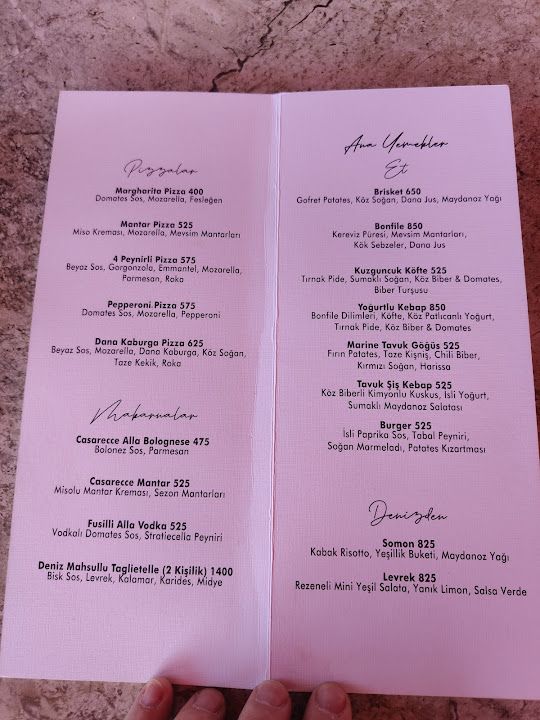 Pizzalar
Margharita Pizza 400
Domates Sos, Mozarella, Fesleğen
Mantar Pizza 525
Miso Kreması, Mozarella, Mevsim Mantarları
4 Peynirli Pizza 575
Beyaz Sos, Gorgonzola, Emmantel, Mozarella,
Parmesan, Roka
Pepperoni Pizza 575
Domates Sos, Mozarella, Pepperoni
Dana Kaburga Pizza 625
Beyaz Sos, Mozarella, Dana Kaburga, Köz Soğan,
Taze Kekik, Roka
Makarnalar
Casarecce Alla Bolognese 475
Bolonez Sos, Parmesan
Casarecce Mantar 525
Misolu Mantar Kreması, Sezon Mantarları
Fusilli Alla Vodka 525
Vodkalı Domates Sos, Stratiecella Peyniri
Deniz Mahsullu Taglietelle (2 Kişilik) 1400
Bisk Sos, Levrek, Kalamar, Karides, Midye
Ana Yemekler
Et
Brisket 650
Gofret Patates, Köz Soğan, Dana Jus, Maydanoz Yağı
Bonfile 850
Kereviz Püresi, Mevsim Mantarları,
Kök Sebzeler, Dana Jus
Kuzguncuk Köfte 525
Tırnak Pide, Sumaklı Soğan, Köz Biber & Domates,
Biber Turşusu
Yoğurtlu Kebap 850
Bonfile Dilimleri, Köfte, Köz Patlıcanlı Yoğurt,
Tırnak Pide, Köz Biber & Domates
Marine Tavuk Göğüs 525
Fırın Patates, Taze Kişniş, Chili Biber,
Kırmızı Soğan, Harissa
Tavuk Şiş Kebap 525
Köz Biberli Kimyonlu Kuskus, İsli Yoğurt,
Sumaklı Maydanoz Salatası
Burger 525
İsli Paprika Sos, Tabal Peyniri,
Soğan Marmeladı, Patates Kızartması
Denizden
Somon 825
Kabak Risotto, Yeşillik Buketi, Maydanoz Yağı
Levrek 825
Rezeneli Mini Yeşil Salata, Yanık Limon, Salsa Verde